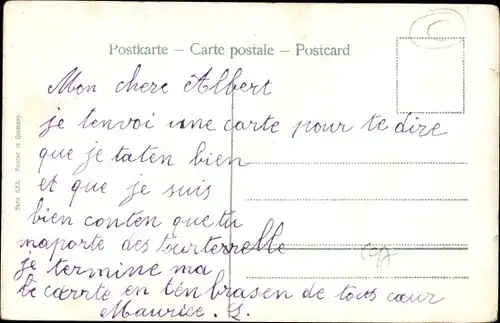 Postkarte – Carte postale – Postcard
Mon chere Albert
je tenvoi une carte pour te dire
que je taten bien
et que je suis
bien conten que tu
maporte des tourterelle
je termine ma
carte en ten brasen de tous cœur
Maurice. L.
Serie 533. Printed in Germany.